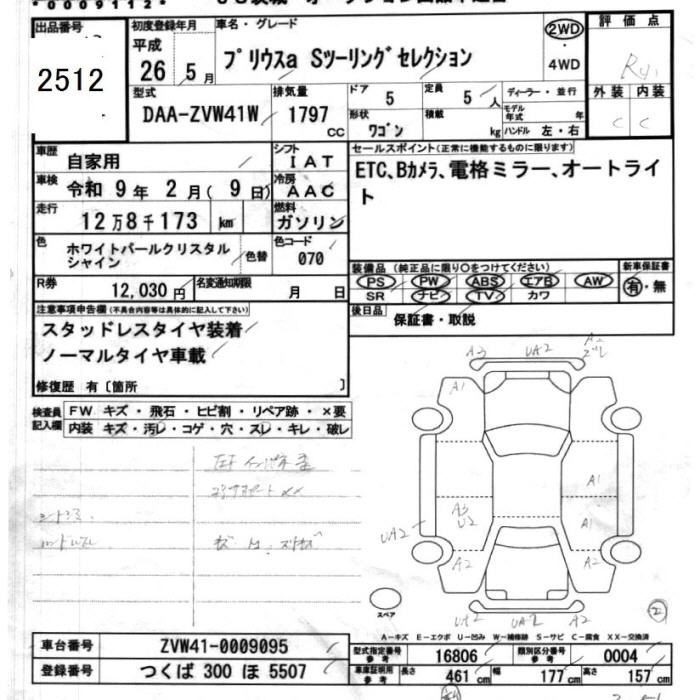 *0009112*
出品番号
2512
初度登録年月
平成
26年 5月
車名・グレード
プリウスa Sツーリングセレクション
2WD
・
4WD
評価点
外装 内装
C C
型式
DAA-ZVW41W
排気量
1797
cc
ドア 5
定員 5人
形状 ワゴン
積載 kg
ディーラー・並行
モデル年式 年
ハンドル 左・右
車歴
自家用
シフト
IAT
車検
令和 9年 2月(9日)
冷房
AAC
走行
12万8千173 km
燃料
ガソリン
色
ホワイトパールクリスタル
シャイン
色替
色コード
070
R券
12,030円
名変通知期限
月 日
セールスポイント(正常に機能するものに限ります)
ETC、Bカメラ、電格ミラー、オートライ
ト
装備品(純正品に限り○をつけてください)
新車保証書
PS PW ABS エアB AW
SR ナビ TV カワ
有・無
後日品
保証書・取説
注意事項申告欄(不具合内容等は具体的に記入して下さい)
スタッドレスタイヤ装着
ノーマルタイヤ車載
修復歴 有〔箇所 〕
検査員
記入欄
FW キズ・飛石・ヒビ割・リペア跡・×要
内装 キズ・汚レ・コゲ・穴・スレ・キレ・破レ
A3 UA2 A2
A1
A1
A3
U2
A1
UA2
A2 A2
UA2 UA2 A2
スペア
A―キズ E―エクボ U―凹み W―補修跡 S―サビ C―腐食 XX―交換済
車台番号
ZVW41-0009095
登録番号
つくば 300 ほ 5507
型式指定番号
参考
16806
類別区分番号
参考
0004
車庫証明用
参考
長さ 461 cm 幅 177 cm 高さ 157 cm